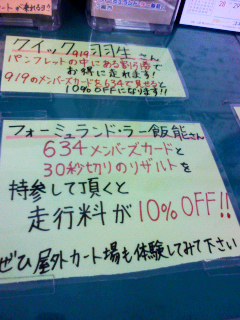 クイック919羽生さん
パンフレットの中にある割引券で
お得に走れます!
919のメンバーズカードを634で見せると
10%OFFになります!!
フォーミュランド・ラー飯能さん
634メンバーズカードと
30秒切りのリザルトを
持参して頂くと
走行料が10%OFF!!
ぜひ屋外カート場も体験してみて下さい